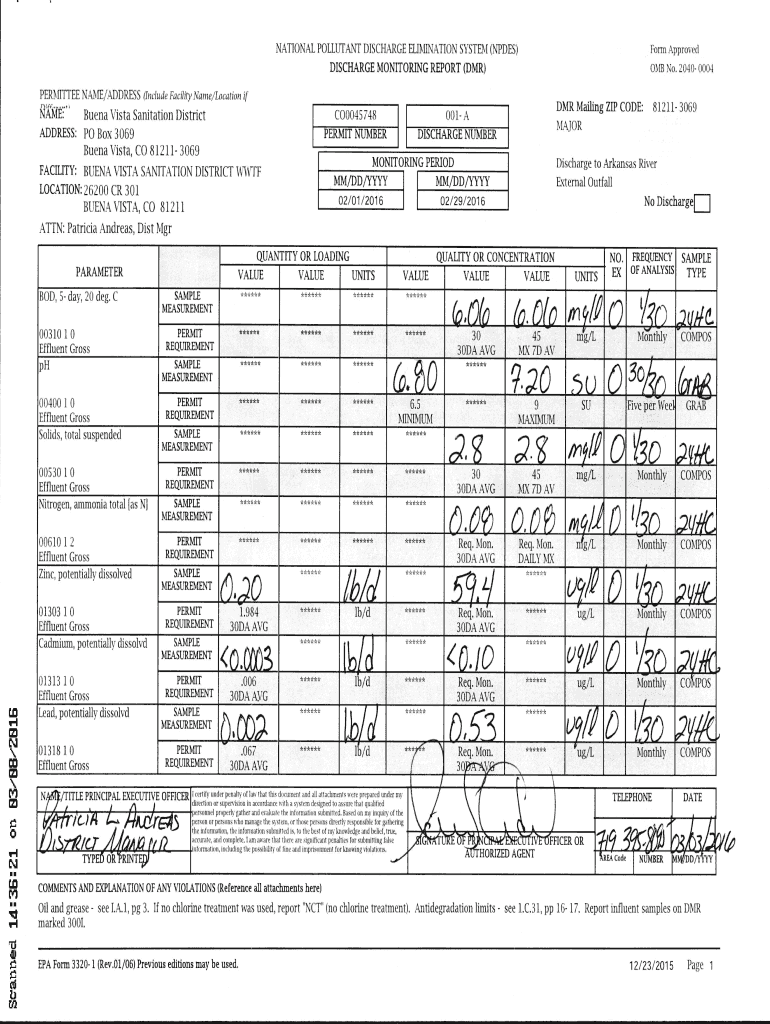 NATIONAL POLLUTANT DISCHARGE ELIMINATION SYSTEM (NPDES)
DISCHARGE MONITORING REPORT (DMR)
Form Approved
OMB No. 2040-0004
PERMITTEE NAME/ADDRESS (Include Facility Name/Location if
NAME: Buena Vista Sanitation District
ADDRESS: PO Box 3069
Buena Vista, CO 81211-3069
FACILITY: BUENA VISTA SANITATION DISTRICT WWTF
LOCATION: 26200 CR 301
BUENA VISTA, CO 81211
ATTN: Patricia Andreas, Dist Mgr
CO0045748 001-A
PERMIT NUMBER DISCHARGE NUMBER
MONITORING PERIOD
MM/DD/YYYY MM/DD/YYYY
02/01/2016 02/29/2016
DMR Mailing ZIP CODE: 81211-3069
MAJOR
Discharge to Arkansas River
External Outfall
No Discharge
PARAMETER QUANTITY OR LOADING QUALITY OR CONCENTRATION NO. EX FREQUENCY OF ANALYSIS SAMPLE TYPE
VALUE VALUE UNITS VALUE VALUE VALUE UNITS
BOD, 5-day, 20 deg. C SAMPLE MEASUREMENT ****** ****** ****** ****** 6.06 6.06 mg/l 0 1/30 24HC
00310 1 0 Effluent Gross PERMIT REQUIREMENT ****** ****** ****** ****** 30 30DA AVG 45 MX 7D AV mg/L Monthly COMPOS
pH SAMPLE MEASUREMENT ****** ****** ****** 6.80 ****** 7.20 SU 0 30/30 GRAB
00400 1 0 Effluent Gross PERMIT REQUIREMENT ****** ****** ****** 6.5 MINIMUM ****** 9 MAXIMUM SU Five per Week GRAB
Solids, total suspended SAMPLE MEASUREMENT ****** ****** ****** ****** 2.8 2.8 mg/l 0 1/30 24HC
00530 1 0 Effluent Gross PERMIT REQUIREMENT ****** ****** ****** ****** 30 30DA AVG 45 MX 7D AV mg/L Monthly COMPOS
Nitrogen, ammonia total [as N] SAMPLE MEASUREMENT ****** ****** ****** ****** 0.08 0.08 mg/l 0 1/30 24HC
00610 1 2 Effluent Gross PERMIT REQUIREMENT ****** ****** ****** ****** Req. Mon. 30DA AVG Req. Mon. DAILY MX mg/L Monthly COMPOS
Zinc, potentially dissolved SAMPLE MEASUREMENT 0.20 ****** lb/d ****** 59.4 ****** ug/l 0 1/30 24HC
01303 1 0 Effluent Gross PERMIT REQUIREMENT 1.984 30DA AVG ****** lb/d ****** Req. Mon. 30DA AVG ****** ug/L Monthly COMPOS
Cadmium, potentially dissolvd SAMPLE MEASUREMENT <0.0003 ****** lb/d ****** <0.10 ****** ug/l 0 1/30 24HC
01313 1 0 Effluent Gross PERMIT REQUIREMENT .006 30DA AVG ****** lb/d ****** Req. Mon. 30DA AVG ****** ug/L Monthly COMPOS
Lead, potentially dissolvd SAMPLE MEASUREMENT 0.002 ****** lb/d ****** 0.53 ****** ug/l 0 1/30 24HC
01318 1 0 Effluent Gross PERMIT REQUIREMENT .067 30DA AVG ****** lb/d ****** Req. Mon. 30DA AVG ****** ug/L Monthly COMPOS
NAME/TITLE PRINCIPAL EXECUTIVE OFFICER
PATRICIA L ANDREAS
DISTRICT MANAGER
TYPED OR PRINTED
I certify under penalty of law that this document and all attachments were prepared under my
direction or supervision in accordance with a system designed to assure that qualified
personnel properly gather and evaluate the information submitted. Based on my inquiry of the
person or persons who manage the system, or those persons directly responsible for gathering
the information, the information submitted is, to the best of my knowledge and belief, true,
accurate, and complete. I am aware that there are significant penalties for submitting false
information, including the possibility of fine and imprisonment for knowing violations.
SIGNATURE OF PRINCIPAL EXECUTIVE OFFICER OR
AUTHORIZED AGENT
TELEPHONE DATE
719 395- 03/03/2016
AREA Code NUMBER MM/DD/YYYY
COMMENTS AND EXPLANATION OF ANY VIOLATIONS (Reference all attachments here)
Oil and grease - see I.A.1, pg 3. If no chlorine treatment was used, report "NCT" (no chlorine treatment). Antidegradation limits - see 1.C.31, pp 16-17. Report influent samples on DMR
marked 300I.
EPA Form 3320-1 (Rev.01/06) Previous editions may be used.
12/23/2015 Page 1
Scanned 14:36:21 on 03-08-2016